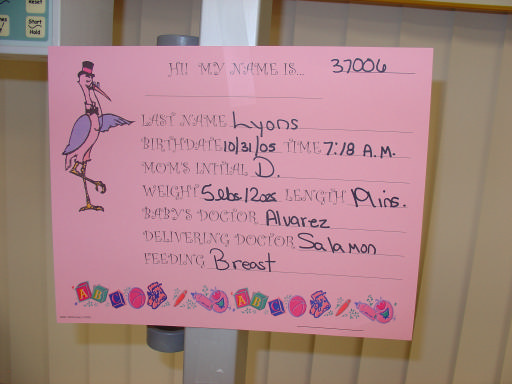 Reset
Start
Hold
HI! MY NAME IS... 37006
LAST NAME Lyons
BIRTHDATE 10/31/05 TIME 7:18 A.M.
MOM'S INITIAL D.
WEIGHT 5lbs 12ozs LENGTH 19ins.
BABY'S DOCTOR Alvarez
DELIVERING DOCTOR Salamon
FEEDING Breast
A B C A B C